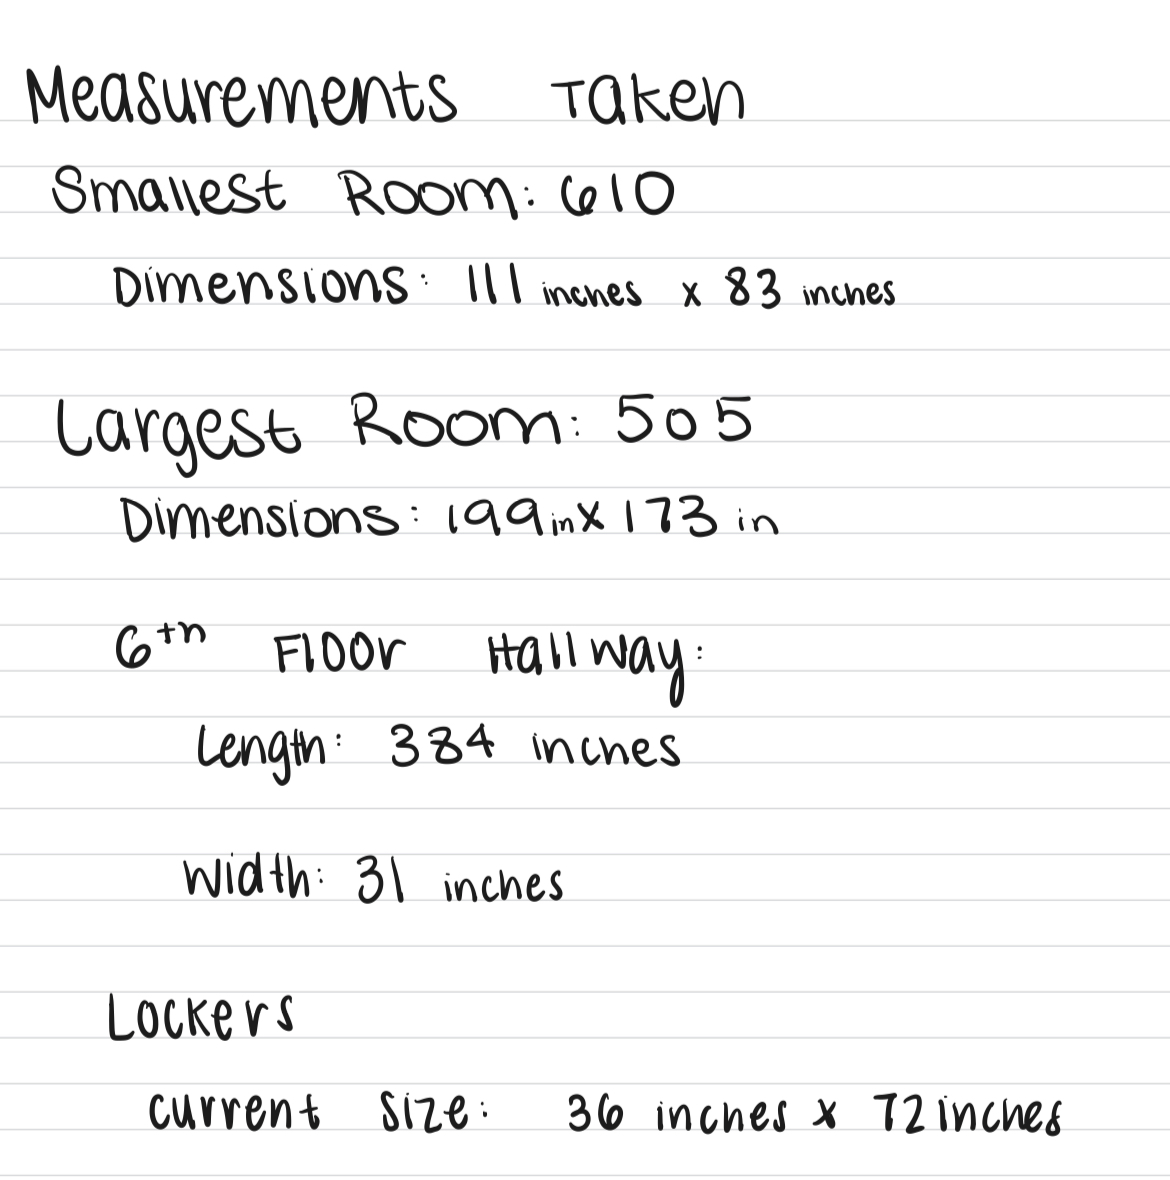 Measurements Taken
Smallest Room: 610
Dimensions: 111 inches x 83 inches
Largest Room: 505
Dimensions: 199 in x 173 in
6th Floor Hallway:
Length: 384 inches
Width: 31 inches
Lockers
current size: 36 inches x 72 inches